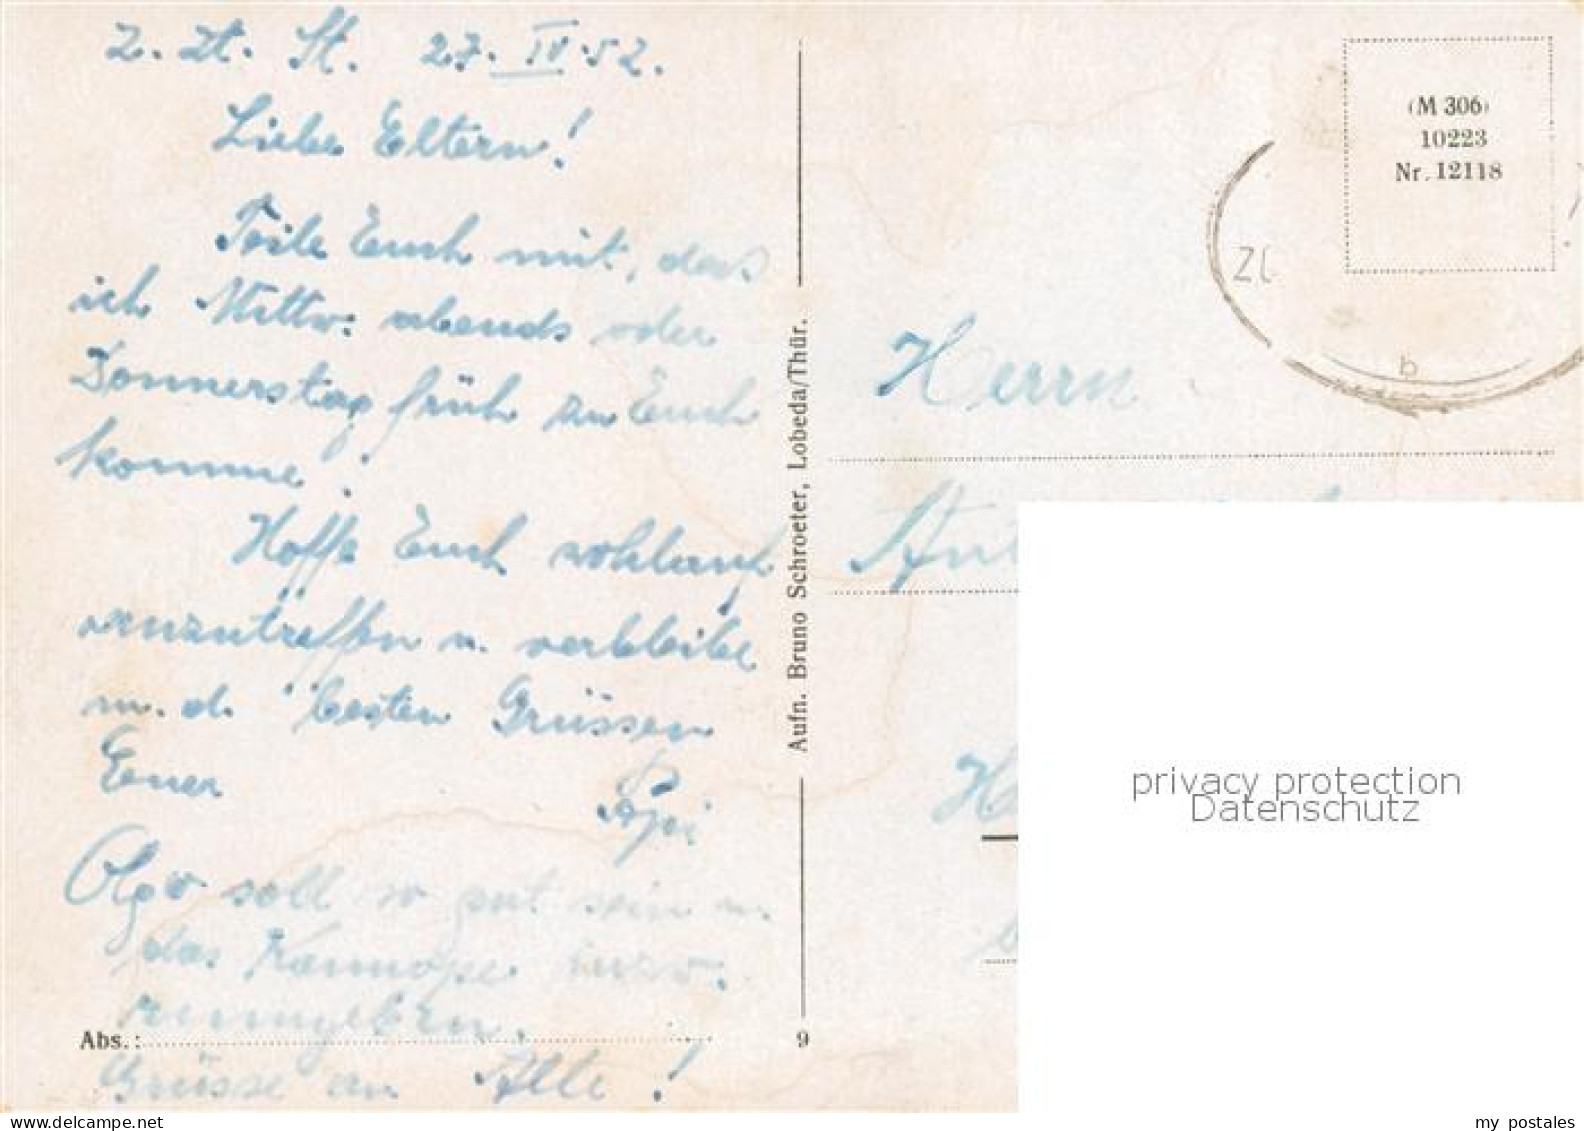 z. Zt. St. 27. IV. 52.
Liebe Eltern!
Teile Euch mit, dass
ich Mittw. abends oder
Donnerstag früh zu Euch
komme!
Hoffe Euch wohlauf
anzutreffen u. verbleibe
m. d. besten Grüssen
Euer
Olga soll so gut sein u.
das
Abs.:
Grüsse an Alle!
Aufn. Bruno Schroeter, Lobeda/Thür.
9
(M 306)
10223
Nr. 12118
b
Herrn
privacy protection
Datenschutz
my postales
www.delcampe.net